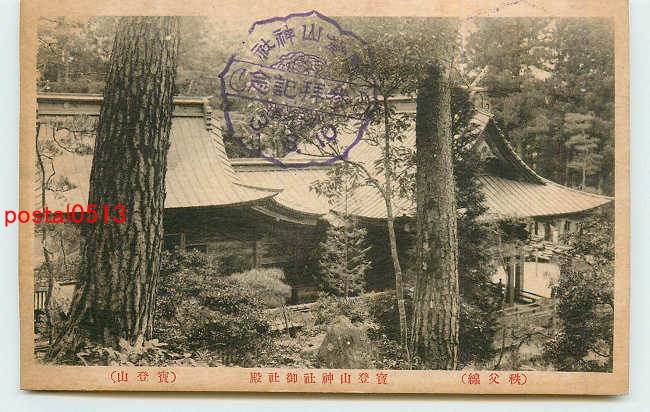 寶登山神社
參拜記念
postal0513
(秩父線)
寶登山神社御社殿
(寶登山)